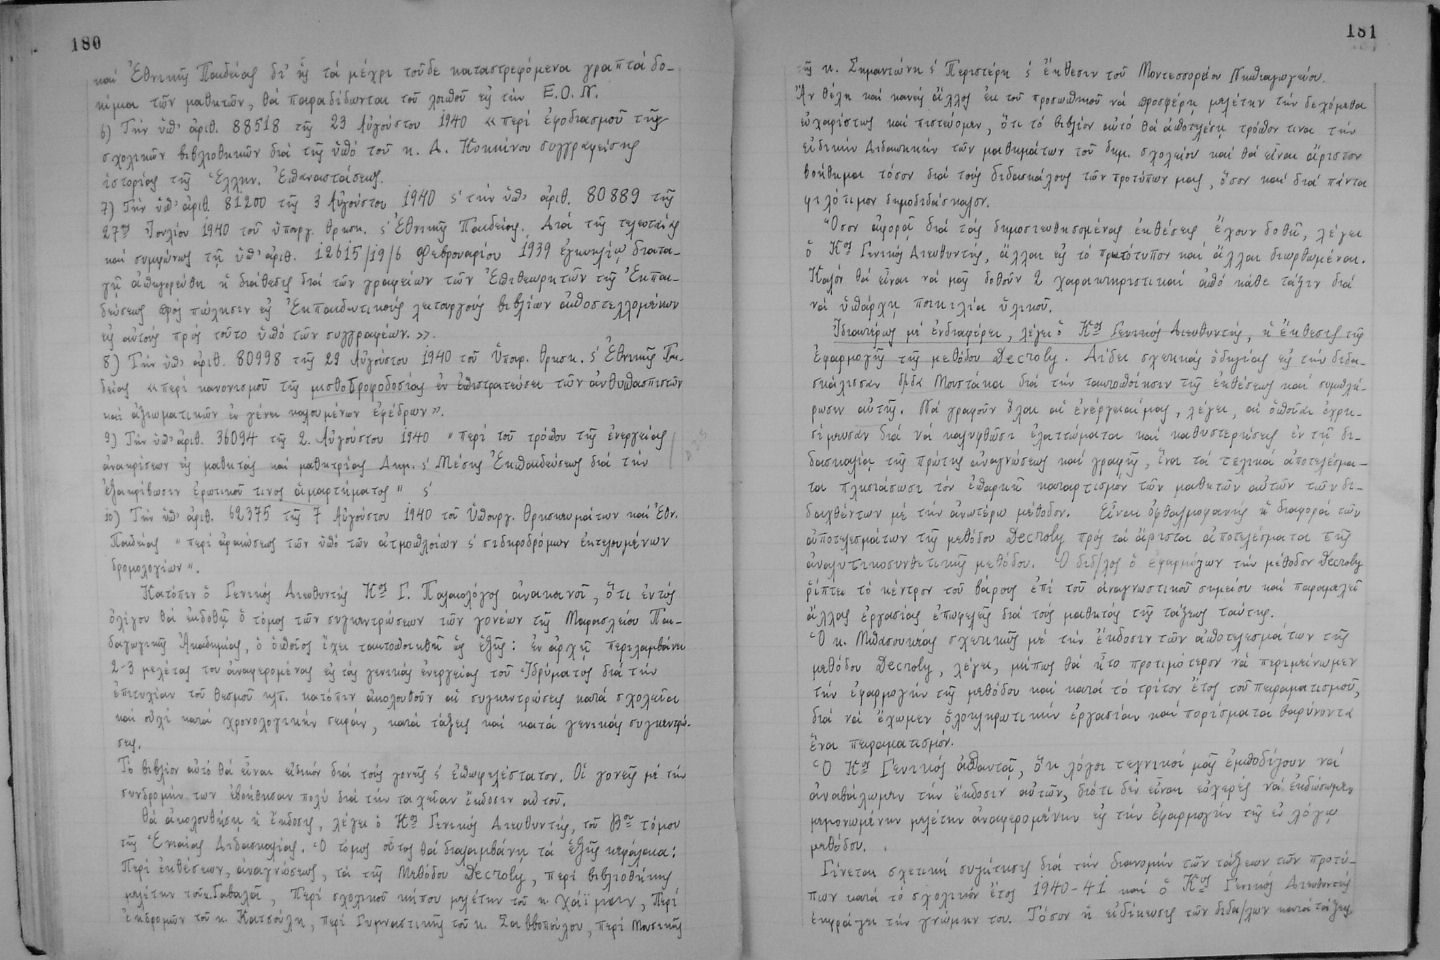 180
καὶ Ἐθνικῆς Παιδείας δι' ἧς τὰ μέχρι τοῦδε καταστρεφόμενα γραπτὰ δο-
κίμια τῶν μαθητῶν, θὰ παραδίδωνται τοῦ λοιποῦ εἰς τὴν Ε.Ο.Ν.
6) Τὴν ὑπ' ἀριθ. 88518 τῆς 23 Αὐγούστου 1940 «περὶ ἐφοδιασμοῦ τῆς
σχολικῶν βιβλιοθηκῶν διὰ τῆς ὑπὸ τοῦ κ. Δ. Κοκκίνου συγγραφείσης
ἱστορίας τῆς Ἑλλην. Ἐπαναστάσεως.
7) Τὴν ὑπ' ἀριθ. 81200 τῆς 3 Αὐγούστου 1940 ς' τὴν ὑπ' ἀριθ. 80889 τῆς
27ης Ἰουλίου 1940 τοῦ ὑπουργ. θρησκ. ς' Ἐθνικῆς Παιδείας. Διὰ τῆς τελευταίας
καὶ συμφώνως τῇ ὑπ' ἀριθ. 12615/19/6 Φεβρουαρίου 1939 ἐγκυκλίῳ διατα-
γῇ ἀπηγορεύθη ἡ διάθεσις διὰ τῶν γραφείων τῶν Ἐπιθεωρητῶν τῆς Ἐκπαι-
δεύσεως πρὸς πώλησιν εἰς Ἐκπαιδευτικοὺς λειτουργοὺς βιβλίων ἀποστελλομένων
εἰς αὐτοὺς πρὸς τοῦτο ὑπὸ τῶν συγγραφέων.».
8) Τὴν ὑπ' ἀριθ. 80998 τῆς 29 Αὐγούστου 1940 τοῦ Ὑπουρ. θρησκ. ς' Ἐθνικῆς Παι-
δείας «περὶ κανονισμοῦ τῆς μισθοτροφοδοσίας ἐν ἐπιστρατεύσει τῶν ἀνθυπασπιστῶν
καὶ ἀξιωματικῶν ἐν γένει καλουμένων ἐφέδρων».
9) Τὴν ὑπ' ἀριθ. 36094 τῆς 2 Αὐγούστου 1940 "περὶ τοῦ τρόπου τῆς ἐνεργείας
ἀνακρίσεων εἰς μαθητὰς καὶ μαθητρίας Δημ. ς' Μέσης Ἐκπαιδεύσεως διὰ τὴν
ἐξακρίβωσιν ἐρωτικοῦ τινος ἁμαρτήματος" ς'
10) Τὴν ὑπ' ἀριθ. 62375 τῆς 7 Αὐγούστου 1940 τοῦ Ὑπουργ. Θρησκευμάτων καὶ Ἐθν.
Παιδείας "περὶ ἀραιώσεως τῶν ὑπὸ τῶν ἀτμοπλοίων ς' σιδηροδρόμων ἐκτελουμένων
δρομολογίων".
Κατόπιν ὁ Γενικὸς Διευθυντὴς Κος Γ. Παλαιολόγος ἀνακοινοῖ, ὅτι ἐντὸς
ὀλίγου θὰ ἐκδοθῇ ὁ τόμος τῶν συγκεντρώσεων τῶν γονέων τῆς Μαρασλείου Παι-
δαγωγικῆς Ἀκαδημίας, ὁ ὁποῖος ἔχει ταυτοποιηθῆ ὡς ἑξῆς: ἐν ἀρχῇ περιλαμβάνει
2-3 μελέτας του ἀναφερομένας εἰς τὰς γενικὰς ἐνεργείας τοῦ Ἱδρύματος διὰ τὴν
ἐπιτυχίαν τοῦ θεσμοῦ κλπ. κατόπιν ἀκολουθοῦν αἱ συγκεντρώσεις κατὰ σχολεῖα
καὶ οὐχὶ κατὰ χρονολογικὴν σειράν, κατὰ τάξεις καὶ κατὰ γενικὰς συγκεντρώ-
σεις.
Τὸ βιβλίον αὐτὸ θὰ εἶναι εἰδικὸν διὰ τοὺς γονεῖς ς' ἐπωφελέστατον. Οἱ γονεῖς μὲ τὴν
συνδρομήν των ἐβοήθησαν πολὺ διὰ τὴν ταχεῖαν ἔκδοσιν αὐτοῦ.
Θὰ ἀκολουθήσῃ ἡ ἔκδοσις, λέγει ὁ Κος Γενικὸς Διευθυντής, τοῦ Βου τόμου
τῆς Ἑνιαίας Διδασκαλίας. Ὁ τόμος οὗτος θὰ διαλαμβάνῃ τὰ ἑξῆς κεφάλαια:
Περὶ ἐκθέσεων, ἀναγνώσεως, τὰ τῆς Μεθόδου Decroly, περὶ βιβλιοθήκης
μελέτην τοῦ κ. Γαβαλᾶ, Περὶ σχολικοῦ κήπου μελέτην τοῦ κ. Χαϊμιων, Περὶ
ἐκδρομῶν τοῦ κ. Κατσούλη, περὶ Γυμναστικῆς τοῦ κ. Σαββοπούλου, περὶ Μουσικῆς
181
τῆς κ. Σημαντώνη ς' Περιστέρη ς' ἔκθεσιν τοῦ Μοντεσσορείου Νηπιαγωγείου.
Ἂν θέλῃ καὶ κανεὶς ἄλλος ἐκ τοῦ προσωπικοῦ νὰ προσφέρῃ μελέτην τὴν δεχόμεθα
εὐχαρίστως καὶ πιστεύομεν, ὅτι τὸ βιβλίον αὐτὸ θὰ ἀποτελέσῃ τρόπον τινα τὴν
εἰδικὴν Διδακτικὴν τῶν μαθημάτων τοῦ δημ. σχολείου καὶ θὰ εἶναι ἄριστον
βοήθημα τόσον διὰ τοὺς διδασκάλους τῶν προτύπων μας, ὅσον καὶ διὰ πάντα
φιλότιμον δημοδιδάσκαλον.
Ὅσον ἀφορᾷ διὰ τὰς δημοσιευθησομένας ἐκθέσεις ἔχουν δοθῆ, λέγει
ὁ Κος Γενικὸς Διευθυντής, ἄλλαι εἰς τὸ πρωτότυπον καὶ ἄλλαι διωρθωμέναι.
Καλὸν θὰ εἶναι νὰ μᾶς δοθοῦν 2 χαρακτηριστικαὶ ἀπὸ κάθε τάξιν διὰ
νὰ ὑπάρχῃ ποικιλία ὑλικοῦ.
Ἰδιαιτέρως μὲ ἐνδιαφέρει, λέγει ὁ Κος Γενικὸς Διευθυντής, ἡ ἔκθεσις τῆς
ἐφαρμογῆς τῆς μεθόδου Decroly. Δίδει σχετικὰς ὁδηγίας εἰς τὴν διδα-
σκάλισσαν δ/δα Μουστάκα διὰ τὴν ταυτοποίησιν τῆς ἐκθέσεως καὶ συμπλή-
ρωσιν αὐτῆς. Νὰ γραφοῦν ὅλαι αἱ ἐνέργειαί μας, λέγει, αἱ ὁποῖαι ἐχρη-
σίμευσαν διὰ νὰ καλυφθῶσι ἐλαττώματα καὶ καθυστερήσεις ἐν τῇ δι-
δασκαλίᾳ τῆς πρώτης ἀναγνώσεως καὶ γραφῆς, ἵνα τὰ τελικὰ ἀποτελέσμα-
τα πλησιάσωσι τὸν ἐπαρκῆ καταρτισμὸν τῶν μαθητῶν αὐτῶν τῶν δι-
δαχθέντων μὲ τὴν ἀνωτέρω μέθοδον. Εἶναι ὀφθαλμοφανὴς ἡ διαφορὰ τῶν
ἀποτελεσμάτων τῆς μεθόδου Decroly πρὸς τὰ ἄριστα ἀποτελέσματα τῆς
ἀναλυτικοσυνθετικῆς μεθόδου. Ὁ διδ/λος ὁ ἐφαρμόζων τὴν μέθοδον Decroly
ῥίπτει τὸ κέντρον τοῦ βάρους ἐπὶ τοῦ ἀναγνωστικοῦ σημείου καὶ παραμελεῖ
ἄλλας ἐργασίας ἐπωφελεῖς διὰ τοὺς μαθητὰς τῆς τάξεως ταύτης.
Ὁ κ. Μπασουρέας σχετικῶς μὲ τὴν ἔκδοσιν τῶν ἀποτελεσμάτων τῆς
μεθόδου Decroly, λέγει, μήπως θὰ ἦτο προτιμότερον νὰ περιμείνωμεν
τὴν ἐφαρμογὴν τῆς μεθόδου καὶ κατὰ τὸ τρίτον ἔτος τοῦ πειραματισμοῦ,
διὰ νὰ ἔχωμεν ὁλοκληρωτικὴν ἐργασίαν καὶ πορίσματα βαρύνοντα
ἕνα πειραματισμόν.
Ὁ Κος Γενικὸς ἀπαντᾷ, ὅτι λόγοι τεχνικοὶ μᾶς ἐμποδίζουν νὰ
ἀναβάλωμεν τὴν ἔκδοσιν αὐτῶν, διότι δὲν εἶναι εὐχερὲς νὰ ἐκδώσωμεν
μεμονωμένην μελέτην ἀναφερομένην εἰς τὴν ἐφαρμογὴν τῆς ἐν λόγῳ
μεθόδου.
Γίνεται σχετικὴ συζήτησις διὰ τὴν διανομὴν τῶν τάξεων τῶν προτύ-
πων κατὰ τὸ σχολικὸν ἔτος 1940-41 καὶ ὁ Κος Γενικὸς Διευθυντὴς
ἐκφράζει τὴν γνώμην του. Τόσον ἡ εἰδίκευσις τῶν διδα/λων κατὰ τάξεις